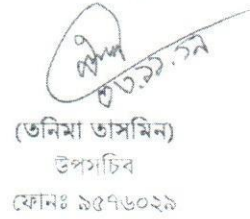 (তনিমা তাসমিন)
উপসচিব
ফোনঃ ৯৫৭৬০২৯